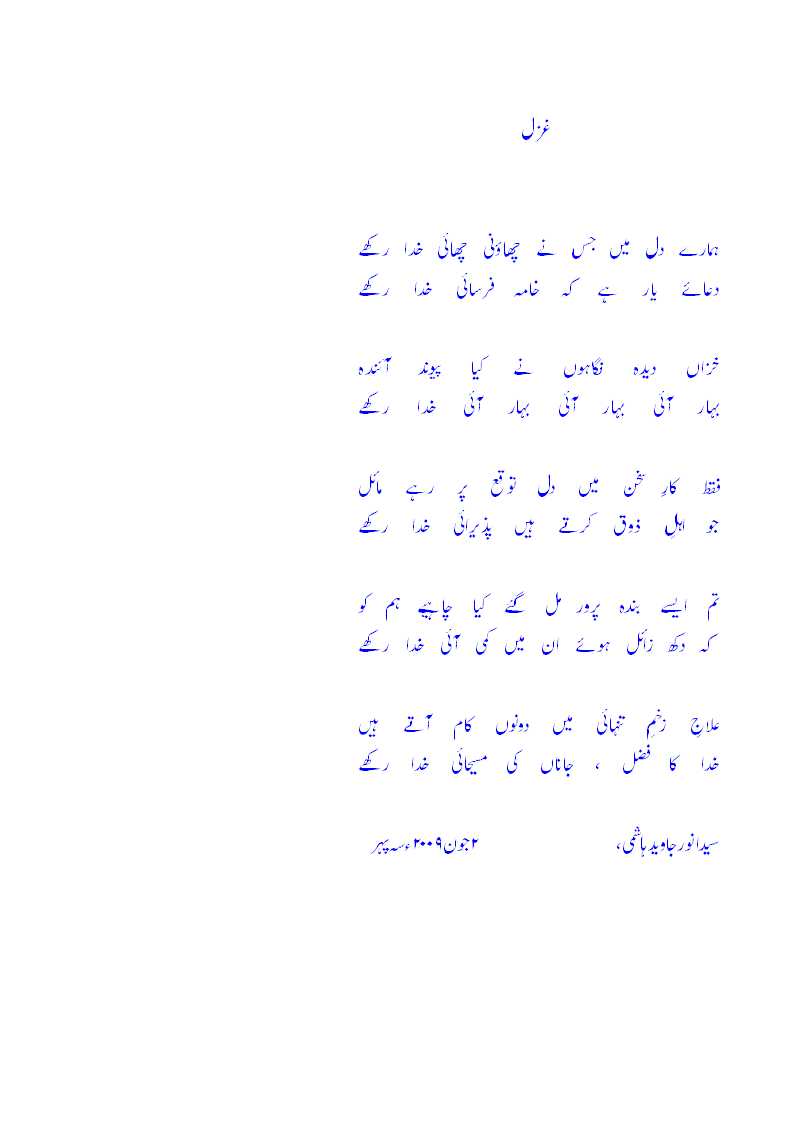 غزل
ہمارے دل میں جس نے چھاؤنی چھائی خدا رکھے
دعائے یار ہے کہ خامہ فرسائی خدا رکھے
خزاں دیدہ نگاہوں نے کیا پیوند آئندہ
بہار آئی بہار آئی بہار آئی خدا رکھے
فقط کارِ سخن میں دل توقع پر رہے مائل
جو اہلِ ذوق کرتے ہیں پذیرائی خدا رکھے
تم ایسے بندہ پرور مل گئے کیا چاہیے ہم کو
کہ دکھ زائل ہوئے ان میں کمی آئی خدا رکھے
علاجِ زخمِ تنہائی میں دونوں کام آتے ہیں
خدا کا فضل ، جاناں کی مسیحائی خدا رکھے
سیدانورجاویدہاشمی، ۲جون۲۰۰۹ءسہ پہر